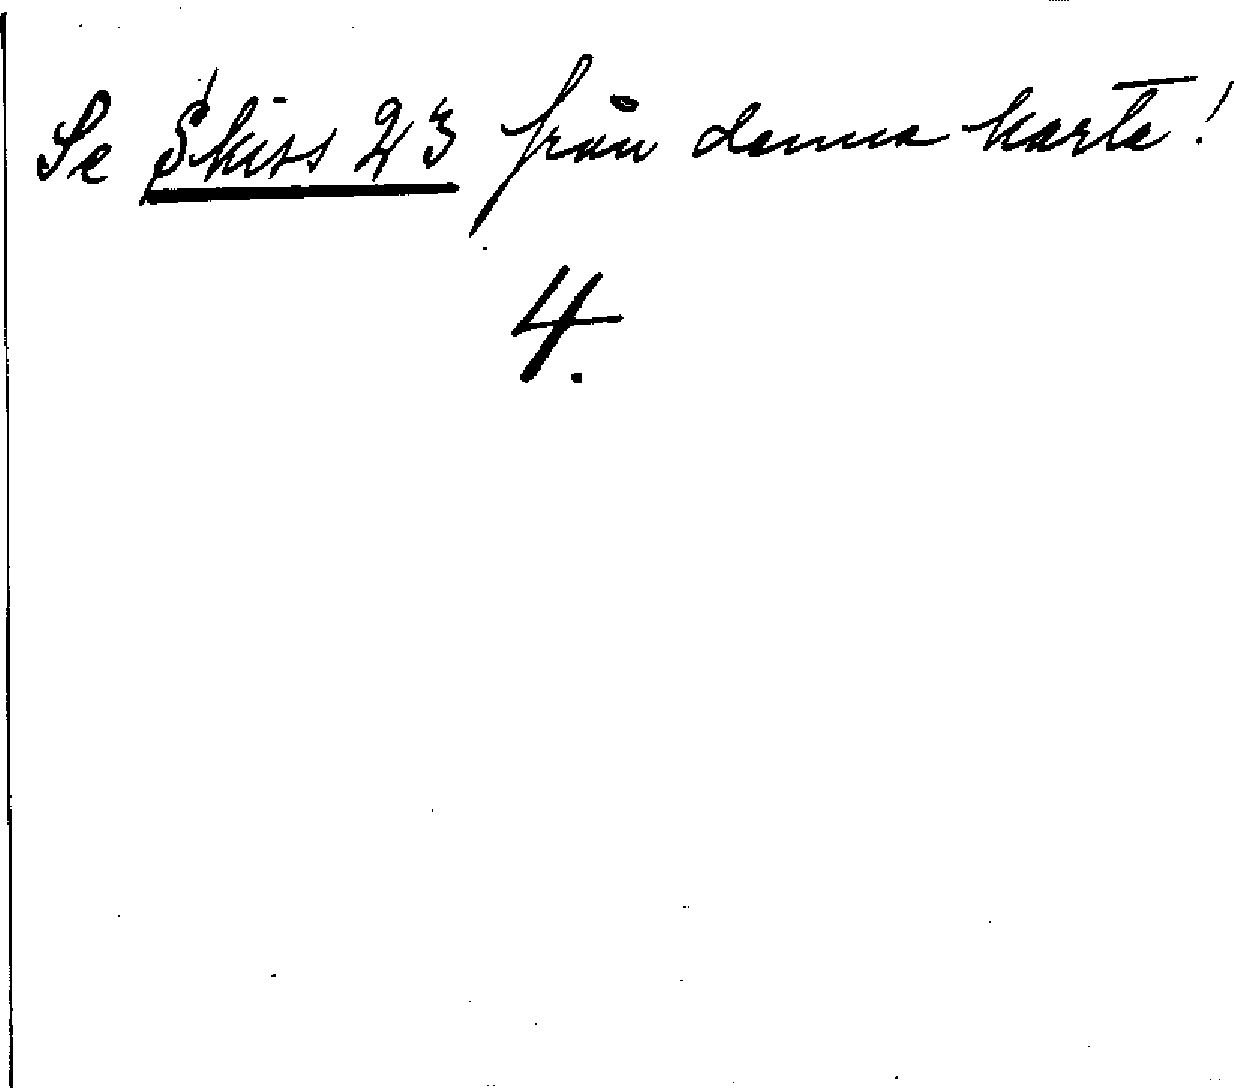 Se Skiss 23 från denna karta!
4.